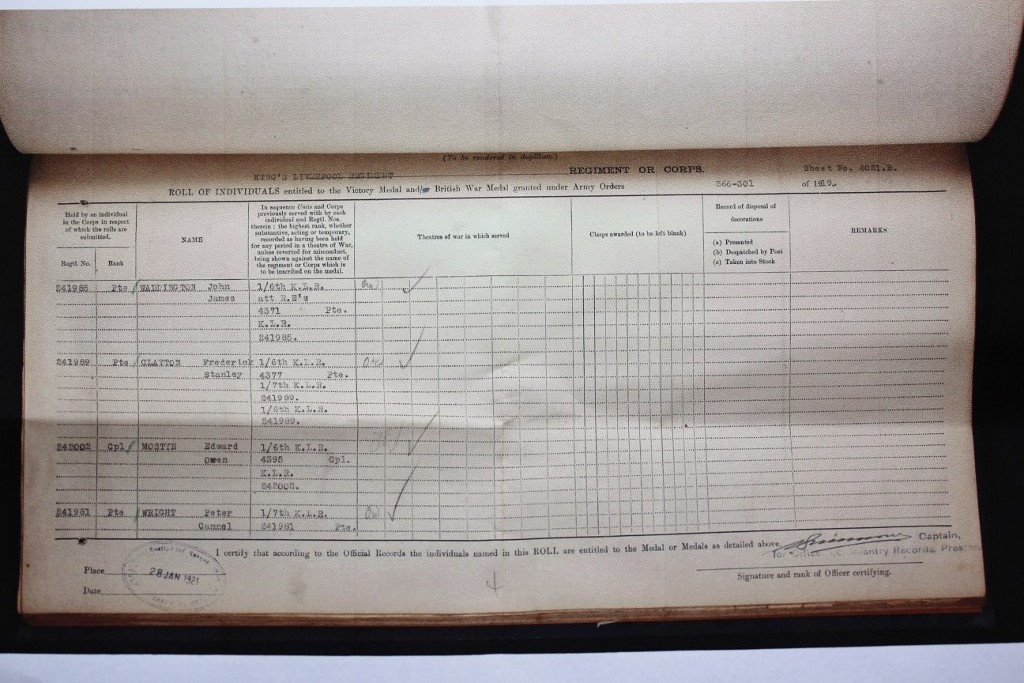 (To be rendered in duplicate.)
KING'S LIVERPOOL REGIMENT REGIMENT OR CORPS. Sheet No. 4021.B.
ROLL OF INDIVIDUALS entitled to the Victory Medal and/or British War Medal granted under Army Orders 266-301 of 1919.
Held by an individual
in the Corps in respect
of which the rolls are
submitted.
Regtl. No. Rank
NAME
In sequence Units and Corps
previously served with by each
individual and Regtl. Nos.
therein: the highest rank, whether
substantive, acting or temporary,
recorded as having been held
for any period in a theatre of War,
unless reverted for misconduct,
being shown against the name of
the regiment or Corps which is
to be inscribed on the medal.
Theatres of war in which served
Clasps awarded (to be left blank)
Record of disposal of
decorations
(a) Presented
(b) Despatched by Post
(c) Taken into Stock
REMARKS
241985 Pte WADDINGTON John 1/6th K.L.R.
James att R.E's
4371 Pte.
K.L.R.
241985.
241989 Pte CLAYTON Frederick 1/6th K.L.R.
Stanley 4377 Pte.
1/7th K.L.R.
241989.
1/6th K.L.R.
241989.
242002 Cpl MOSTYN Edward 1/6th K.L.R.
Owen 4395 Cpl.
K.L.R.
242002.
241981 Pte WRIGHT Peter 1/7th K.L.R.
Cannel 241981 Pte.
I certify that according to the Official Records the individuals named in this ROLL are entitled to the Medal or Medals as detailed above.
Captain,
for Infantry Records, Preston
Place
28 JAN 1921
Date
Signature and rank of Officer certifying.